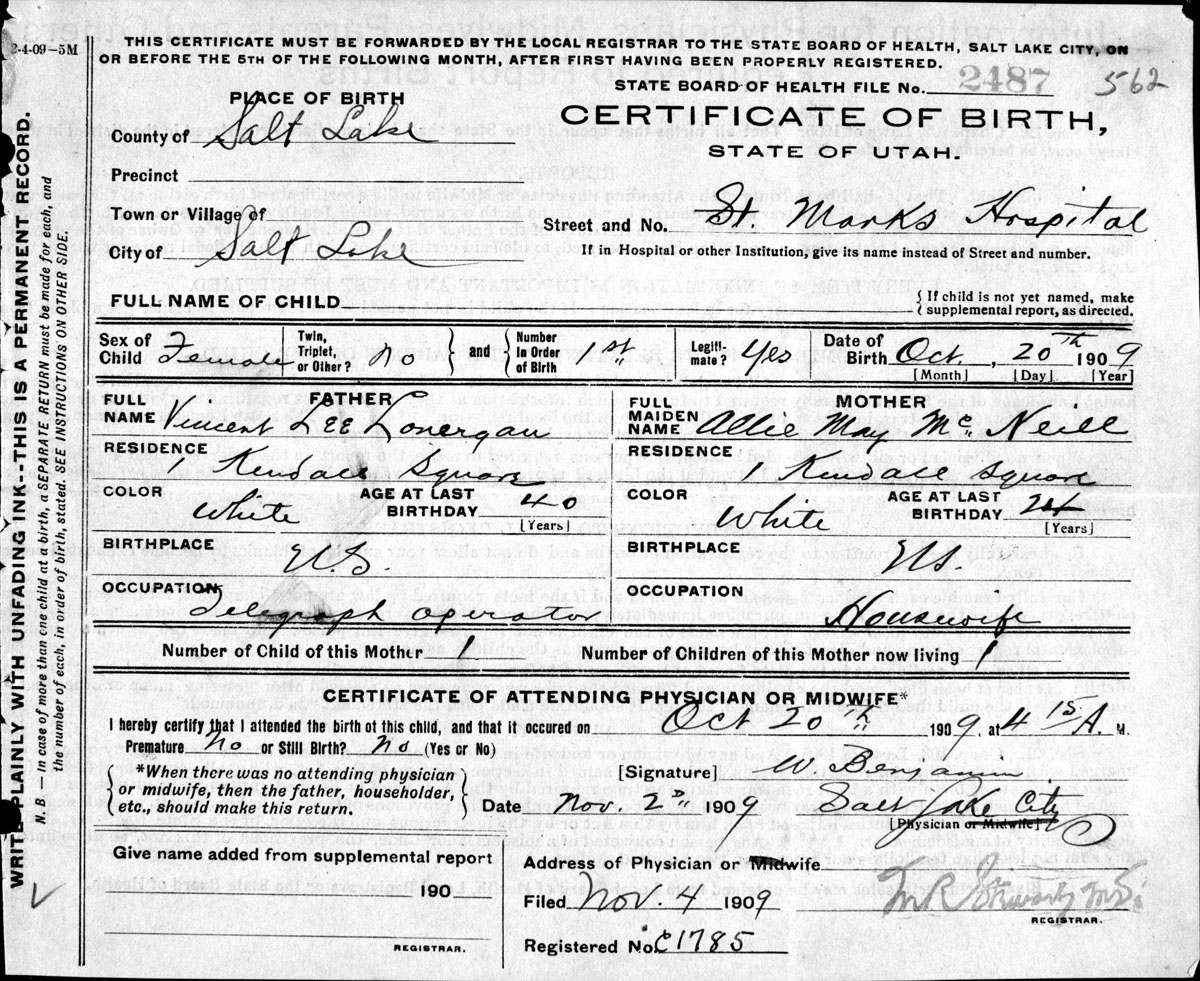 2-4-09-5M
THIS CERTIFICATE MUST BE FORWARDED BY THE LOCAL REGISTRAR TO THE STATE BOARD OF HEALTH, SALT LAKE CITY, ON
OR BEFORE THE 5TH OF THE FOLLOWING MONTH, AFTER FIRST HAVING BEEN PROPERLY REGISTERED.
STATE BOARD OF HEALTH FILE No. 2487 562
PLACE OF BIRTH
CERTIFICATE OF BIRTH,
STATE OF UTAH.
County of Salt Lake
Precinct
Town or Village of
Street and No. St. Marks Hospital
City of Salt Lake
If in Hospital or other Institution, give its name instead of Street and number.
FULL NAME OF CHILD
{If child is not yet named, make
supplemental report, as directed.
Sex of Child Female Twin, Triplet, or Other? No and Number in Order of Birth 1st Legitimate? Yes Date of Birth Oct, 20th 1909
[Month] [Day] [Year]
FATHER
FULL NAME Vincent Lee Lonergan
RESIDENCE 1 Kendall Square
COLOR White AGE AT LAST BIRTHDAY 40
[Years]
BIRTHPLACE U.S.
OCCUPATION Telegraph Operator
MOTHER
FULL MAIDEN NAME Allie May McNeill
RESIDENCE 1 Kendall Square
COLOR White AGE AT LAST BIRTHDAY 24
[Years]
BIRTHPLACE U.S.
OCCUPATION Housewife
Number of Child of this Mother 1 Number of Children of this Mother now living 1
CERTIFICATE OF ATTENDING PHYSICIAN OR MIDWIFE*
I hereby certify that I attended the birth of this child, and that it occured on Oct 20th 1909, at 4 15 A. M.
Premature No or Still Birth? No (Yes or No)
*When there was no attending physician
or midwife, then the father, householder,
etc., should make this return.
[Signature] W Benjamin
Date Nov. 2nd 1909 Salt Lake City
[Physician or Midwife]
Give name added from supplemental report
190
REGISTRAR.
Address of Physician or Midwife
Filed Nov. 4 1909
REGISTRAR.
Registered No. C1785
WRITE PLAINLY WITH UNFADING INK--THIS IS A PERMANENT RECORD.
N. B. — In case of more than one child at a birth, a SEPARATE RETURN must be made for each, and
the number of each, in order of birth, stated. SEE INSTRUCTIONS ON OTHER SIDE.